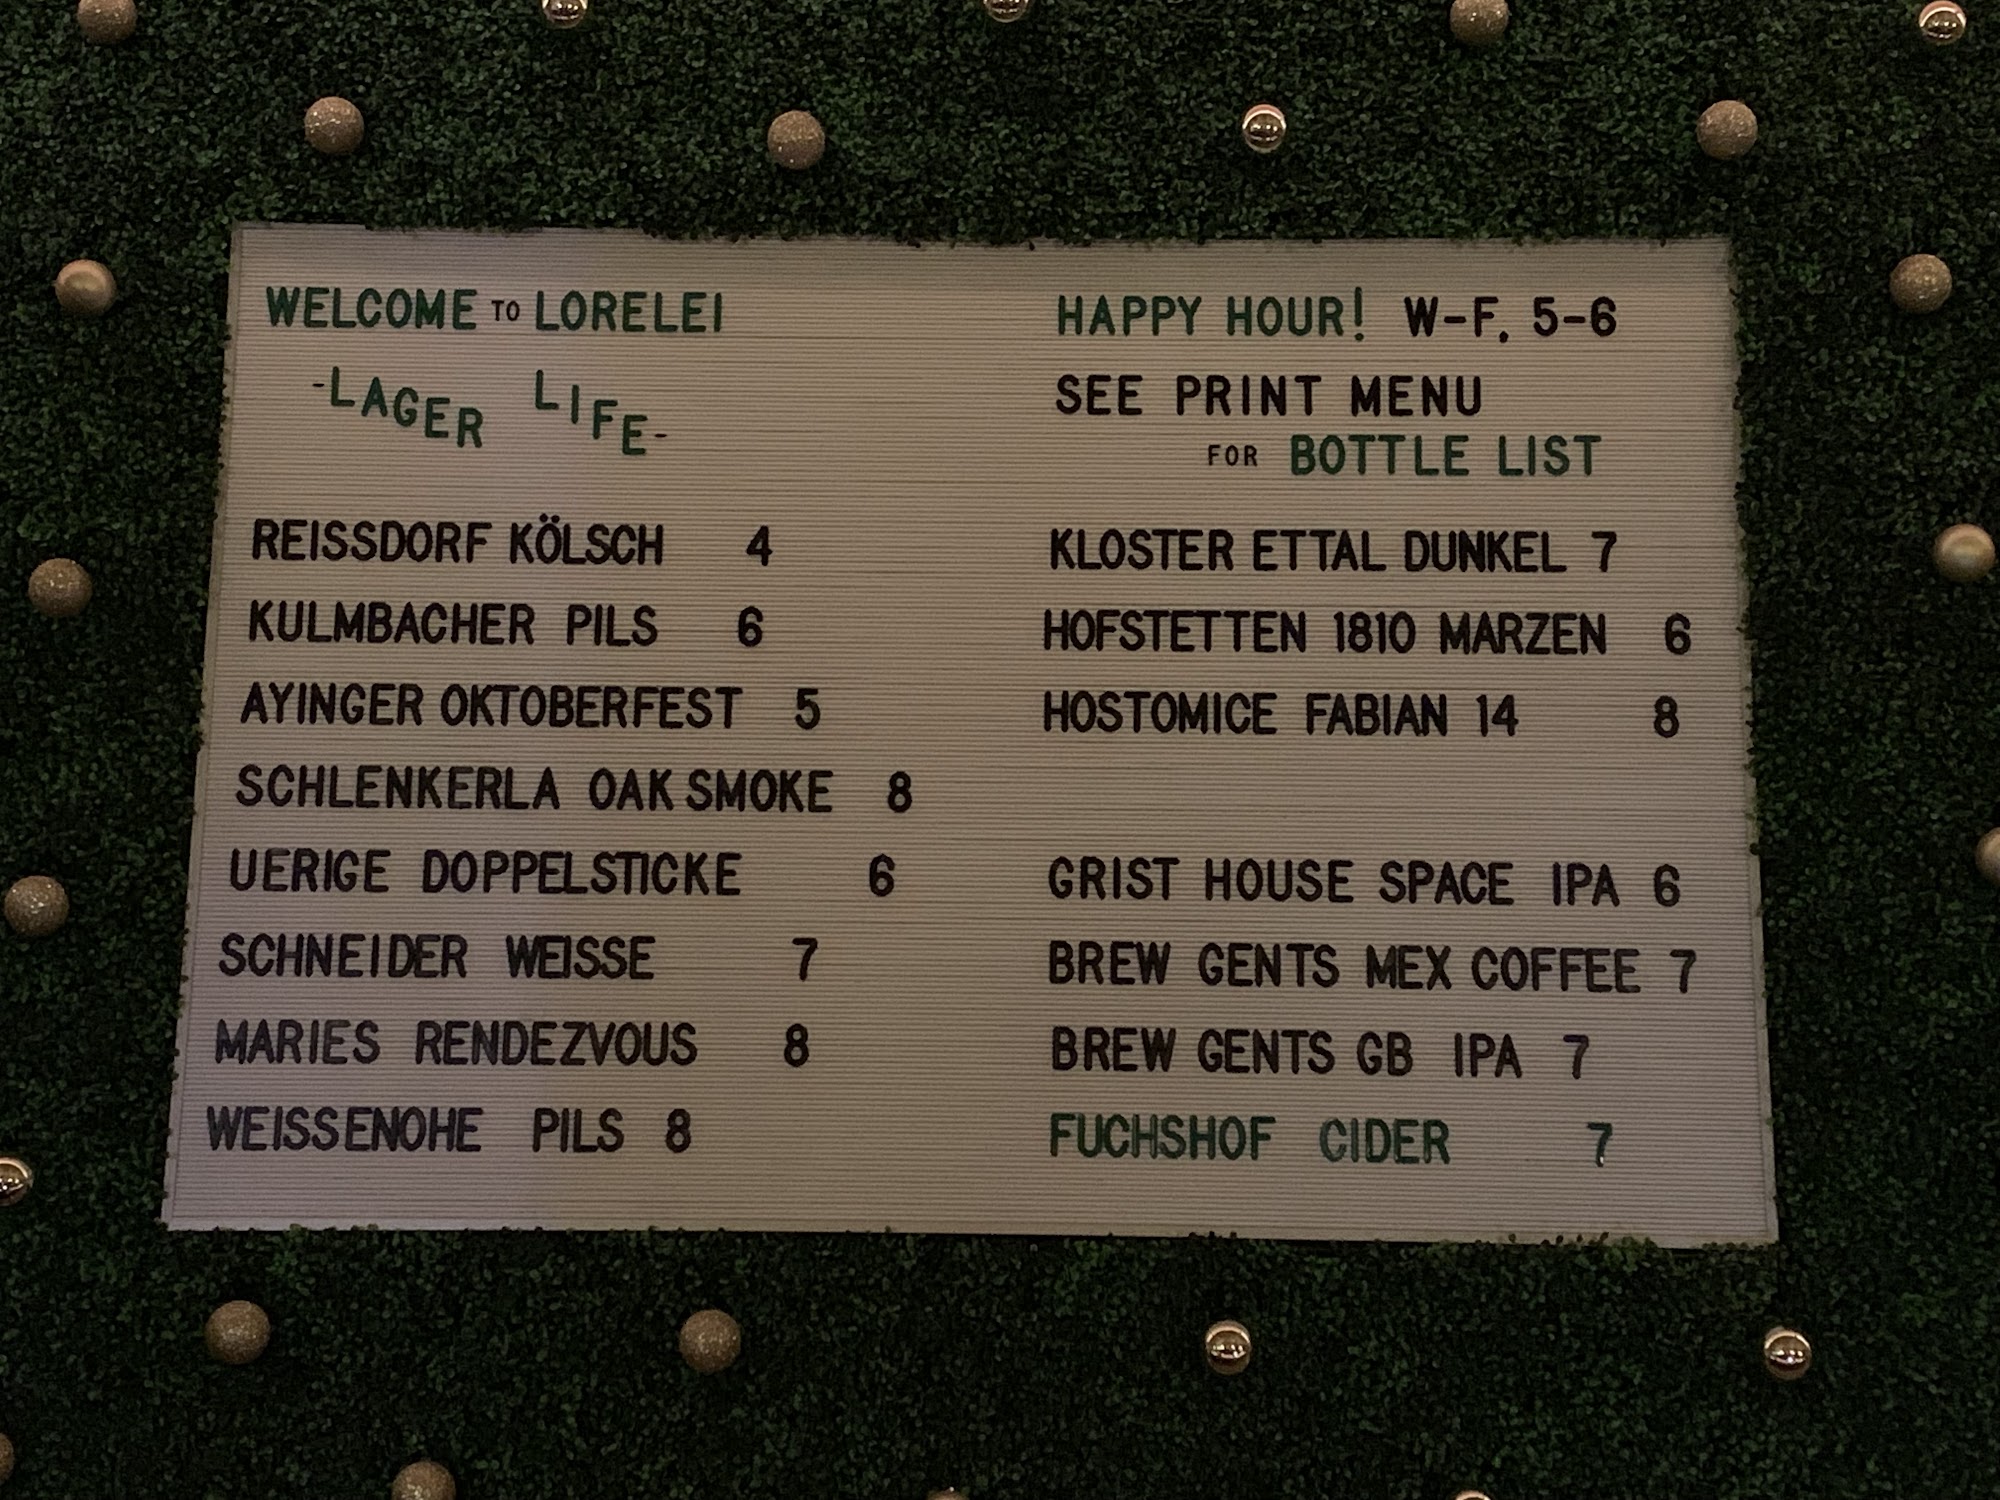 WELCOME TO LORELEI
-LAGER LIFE-
REISSDORF KÖLSCH 4
KULMBACHER PILS 6
AYINGER OKTOBERFEST 5
SCHLENKERLA OAK SMOKE 8
UERIGE DOPPELSTICKE 6
SCHNEIDER WEISSE 7
MARIES RENDEZVOUS 8
WEISSENOHE PILS 8
HAPPY HOUR! W-F, 5-6
SEE PRINT MENU
FOR BOTTLE LIST
KLOSTER ETTAL DUNKEL 7
HOFSTETTEN 1810 MARZEN 6
HOSTOMICE FABIAN 14 8
GRIST HOUSE SPACE IPA 6
BREW GENTS MEX COFFEE 7
BREW GENTS GB IPA 7
FUCHSHOF CIDER 7